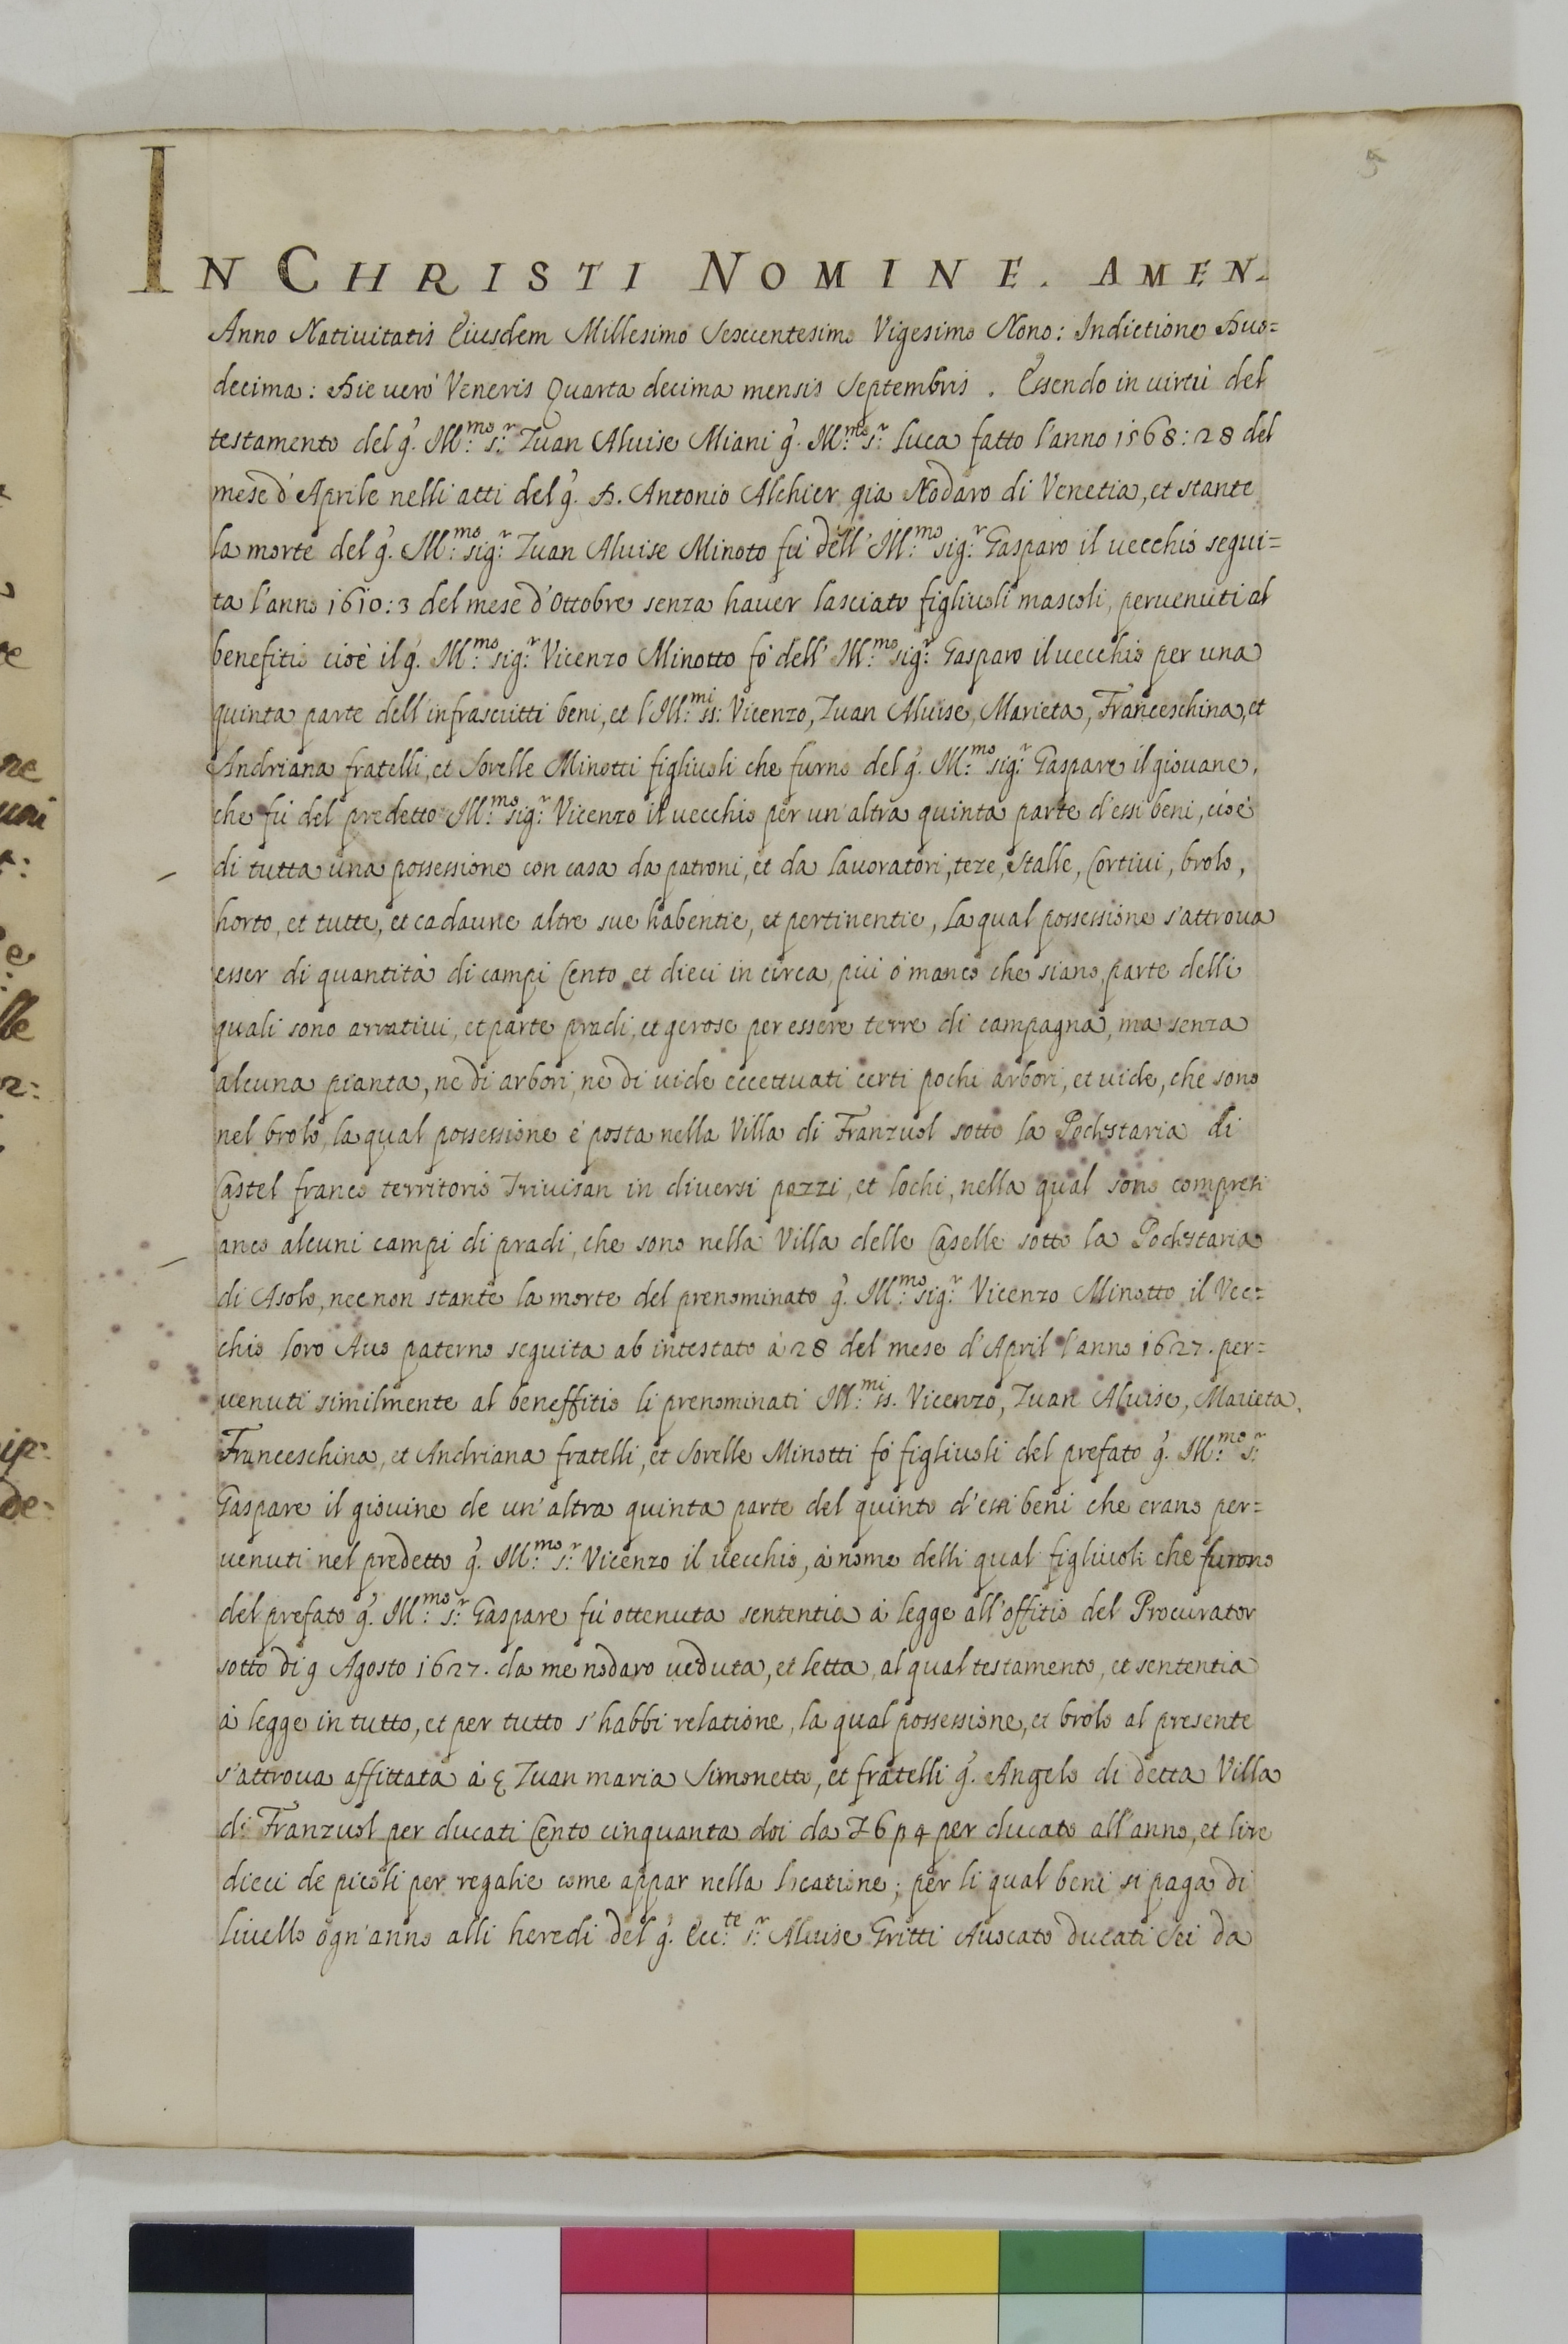 5
IN CHRISTI NOMINE. AMEN.
Anno Natiuitatis Eiusdem Millesimo Sexcentesimo Vigesimo Nono: Indictione Duo=
decima: Die uerò Veneris Quarta decima mensis Septembris. Essendo in uirtù del
testamento del q. Ill:mo s:r Zuan Aluise Miani q. Ill:mo s:r Luca fatto l'anno 1568:28 del
mese d'Aprile nelli atti del q. D. Antonio Alchier già Nodaro di Venetia, et stante
la morte del q. Ill:mo sig:r Zuan Aluise Minoto fù dell'Ill:mo sig:r Gasparo il uecchio segui=
ta l'anno 1610:3 del mese d'Ottobre senza hauer lasciato figliuoli mascoli, peruenuti al
benefitio cioè il q. Ill:mo sig:r Vicenzo Minotto fò dell' Ill:mo sig:r Gasparo il uecchio per una
quinta parte dell'infrascritti beni, et l'Ill:mi ss: Vicenzo, Zuan Aluise, Marieta, Franceschina, et
Andriana fratelli, et Sorelle Minotti figliuoli che furno del q. Ill:mo sig:r Gaspare il giouane,
che fù del predetto Ill:mo sig:r Vicenzo il uecchio per un'altra quinta parte d'essi beni, cioè
di tutta una possessione con casa da patroni, et da lauoratori, teze, Stalle, Cortiui, brolo,
horto, et tutte, et cadaune altre sue habentie, et pertinentie, La qual possessione s'attroua
esser di quantità di campi Cento et dieci in circa, più ò manco che siano, parte delli
quali sono arratiui, et parte pradi, et gerose per essere terre di campagna, ma senza
alcuna pianta, ne di arbori, ne di uide eccettuati certi pochi arbori, et uide, che sono
nel brolo, la qual possessione è posta nella Villa di Franzuol sotto la Podestaria di
Castel franco territorio Triuisan in diversi pezzi, et lochi, nella qual sono compresi
anco alcuni campi di pradi, che sono nella Villa delle Caselle sotto la Podestaria
di Asolo, necnon stante la morte del prenominato q. Ill:mo sig:r Vicenzo Minotto il Vec=
chio loro Auo paterno seguita ab intestato à 28 del mese d'April l'anno 1627. per=
uenuti similmente al beneffitio li prenominati Ill:mi ss. Vicenzo, Zuan Aluise, Marieta,
Franceschina, et Andriana fratelli, et Sorelle Minotti fò figliuoli del prefato q. Ill:mo s:r
Gaspare il giouine de un'altra quinta parte del quinto d'essi beni che erano per=
uenuti nel predetto q. Ill:mo s:r Vicenzo il uecchio, à nome delli qual figliuoli che furono
del prefato q. Ill:mo s:r Gaspare fù ottenuta sententia à legge all'offitio del Procurator
sotto di 9 Agosto 1627. da me nodaro ueduta, et letta, al qual testamento, et sententia
à legge in tutto, et per tutto s'habbi relatione, la qual possessione, et brolo al presente
s'attroua affittata à Zuan maria Simonetto, et fratelli q. Angelo di detta Villa
di Franzuol per ducati Cento cinquanta doi da 6 p 4 per ducato all'anno, et lire
dieci de picoli per regalie come appar nella locatione; per li qual beni si paga di
liuello ogn'anno alli heredi del q. Ecc:te s:r Aluise Gritti Auocato ducati Sei da